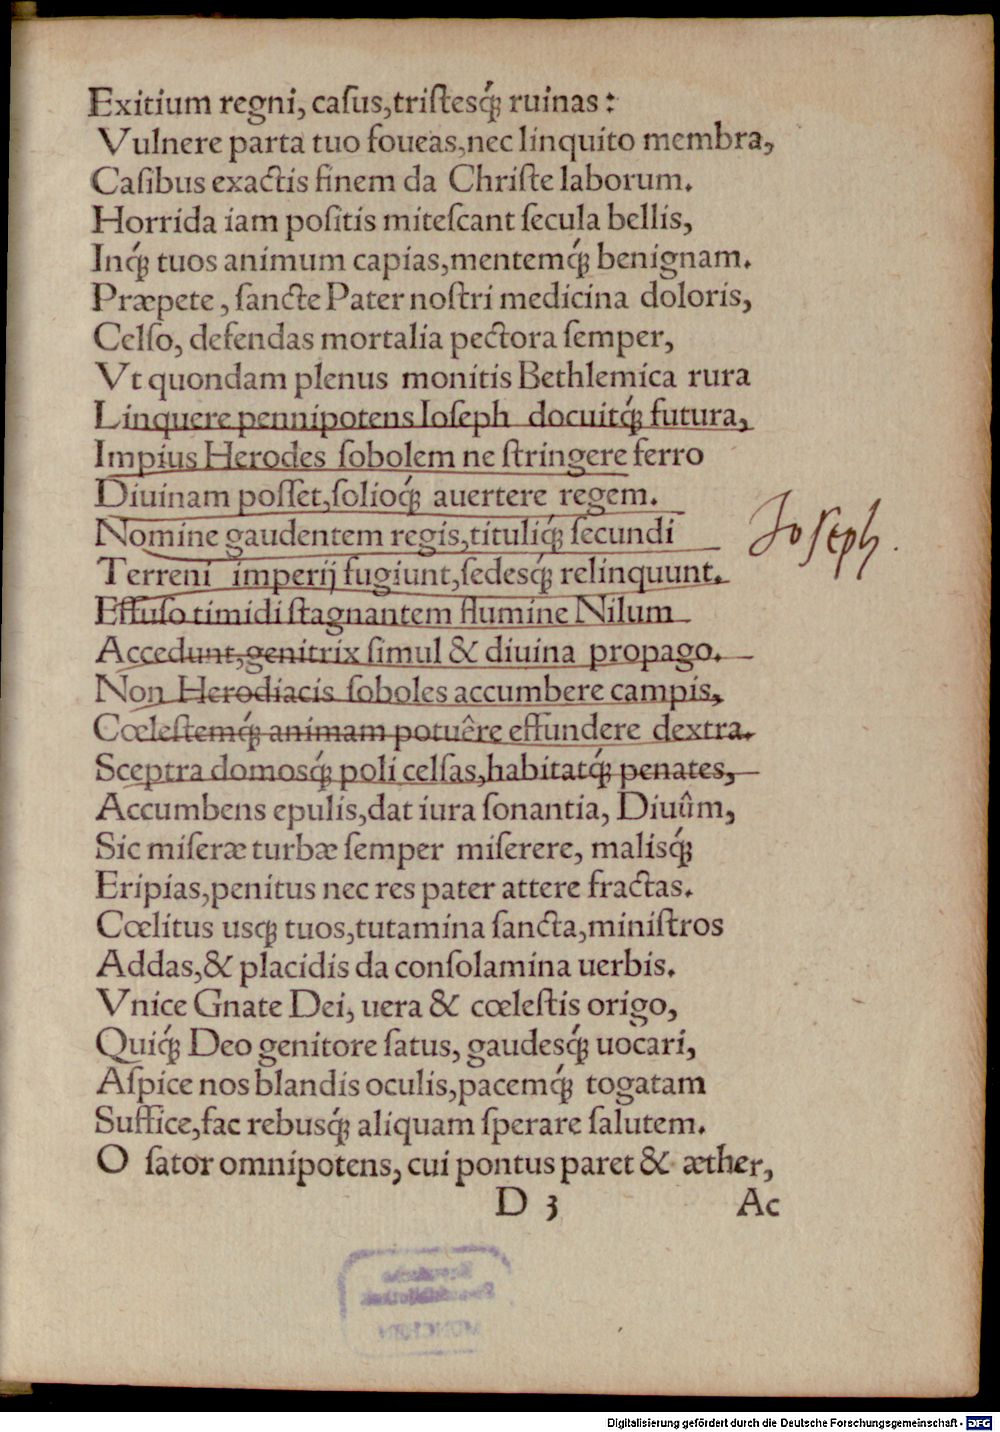 Exitium regni, caſus,triſtesq́; ruinas :
Vulnere parta tuo foueas,nec linquito membra,
Caſibus exactis finem da Chriſte laborum.
Horrida iam poſitis miteſcant ſecula bellis,
Inq́; tuos animum capias,mentemq́; benignam.
Præpete , ſancte Pater noſtri medicina doloris,
Celſo, defendas mortalia pectora ſemper,
Vt quondam plenus monitis Bethlemica rura
Linquere pennipotens Ioſeph docuitq́; futura,
Impius Herodes ſobolem ne ſtringere ferro
Diuinam poſſet,ſolioq́; auertere regem.
Nomine gaudentem regis,tituliq́; ſecundi
Ioſeph.
Terreni imperij fugiunt,ſedesq́; relinquunt.
Effuſo timidi ſtagnantem flumine Nilum
Accedunt,genitrix ſimul & diuina propago.
Non Herodiacis ſoboles accumbere campis,
Cœleſtemq́; animam potuêre effundere dextra.
Sceptra domosq́; poli celſas,habitatq́; penates,
Accumbens epulis,dat iura ſonantia, Diuûm,
Sic miſeræ turbæ ſemper miſerere, malisq́;
Eripias,penitus nec res pater attere fractas.
Cœlitus usq; tuos,tutamina ſancta,miniſtros
Addas,& placidis da conſolamina uerbis.
Vnice Gnate Dei, uera & cœleſtis origo,
Quiq́; Deo genitore ſatus, gaudesq́; uocari,
Aſpice nos blandis oculis,pacemq́; togatam
Suffice,fac rebusq́; aliquam ſperare ſalutem.
O ſator omnipotens, cui pontus paret & æther,
D 3 Ac
MÜNCHEN
Digitalisierung gefördert durch die Deutsche Forschungsgemeinschaft - DFG